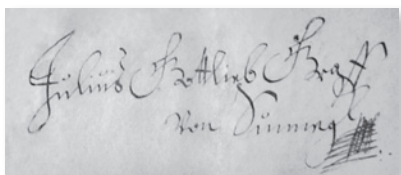 Julius Gottlieb Graff
Von Sünneg